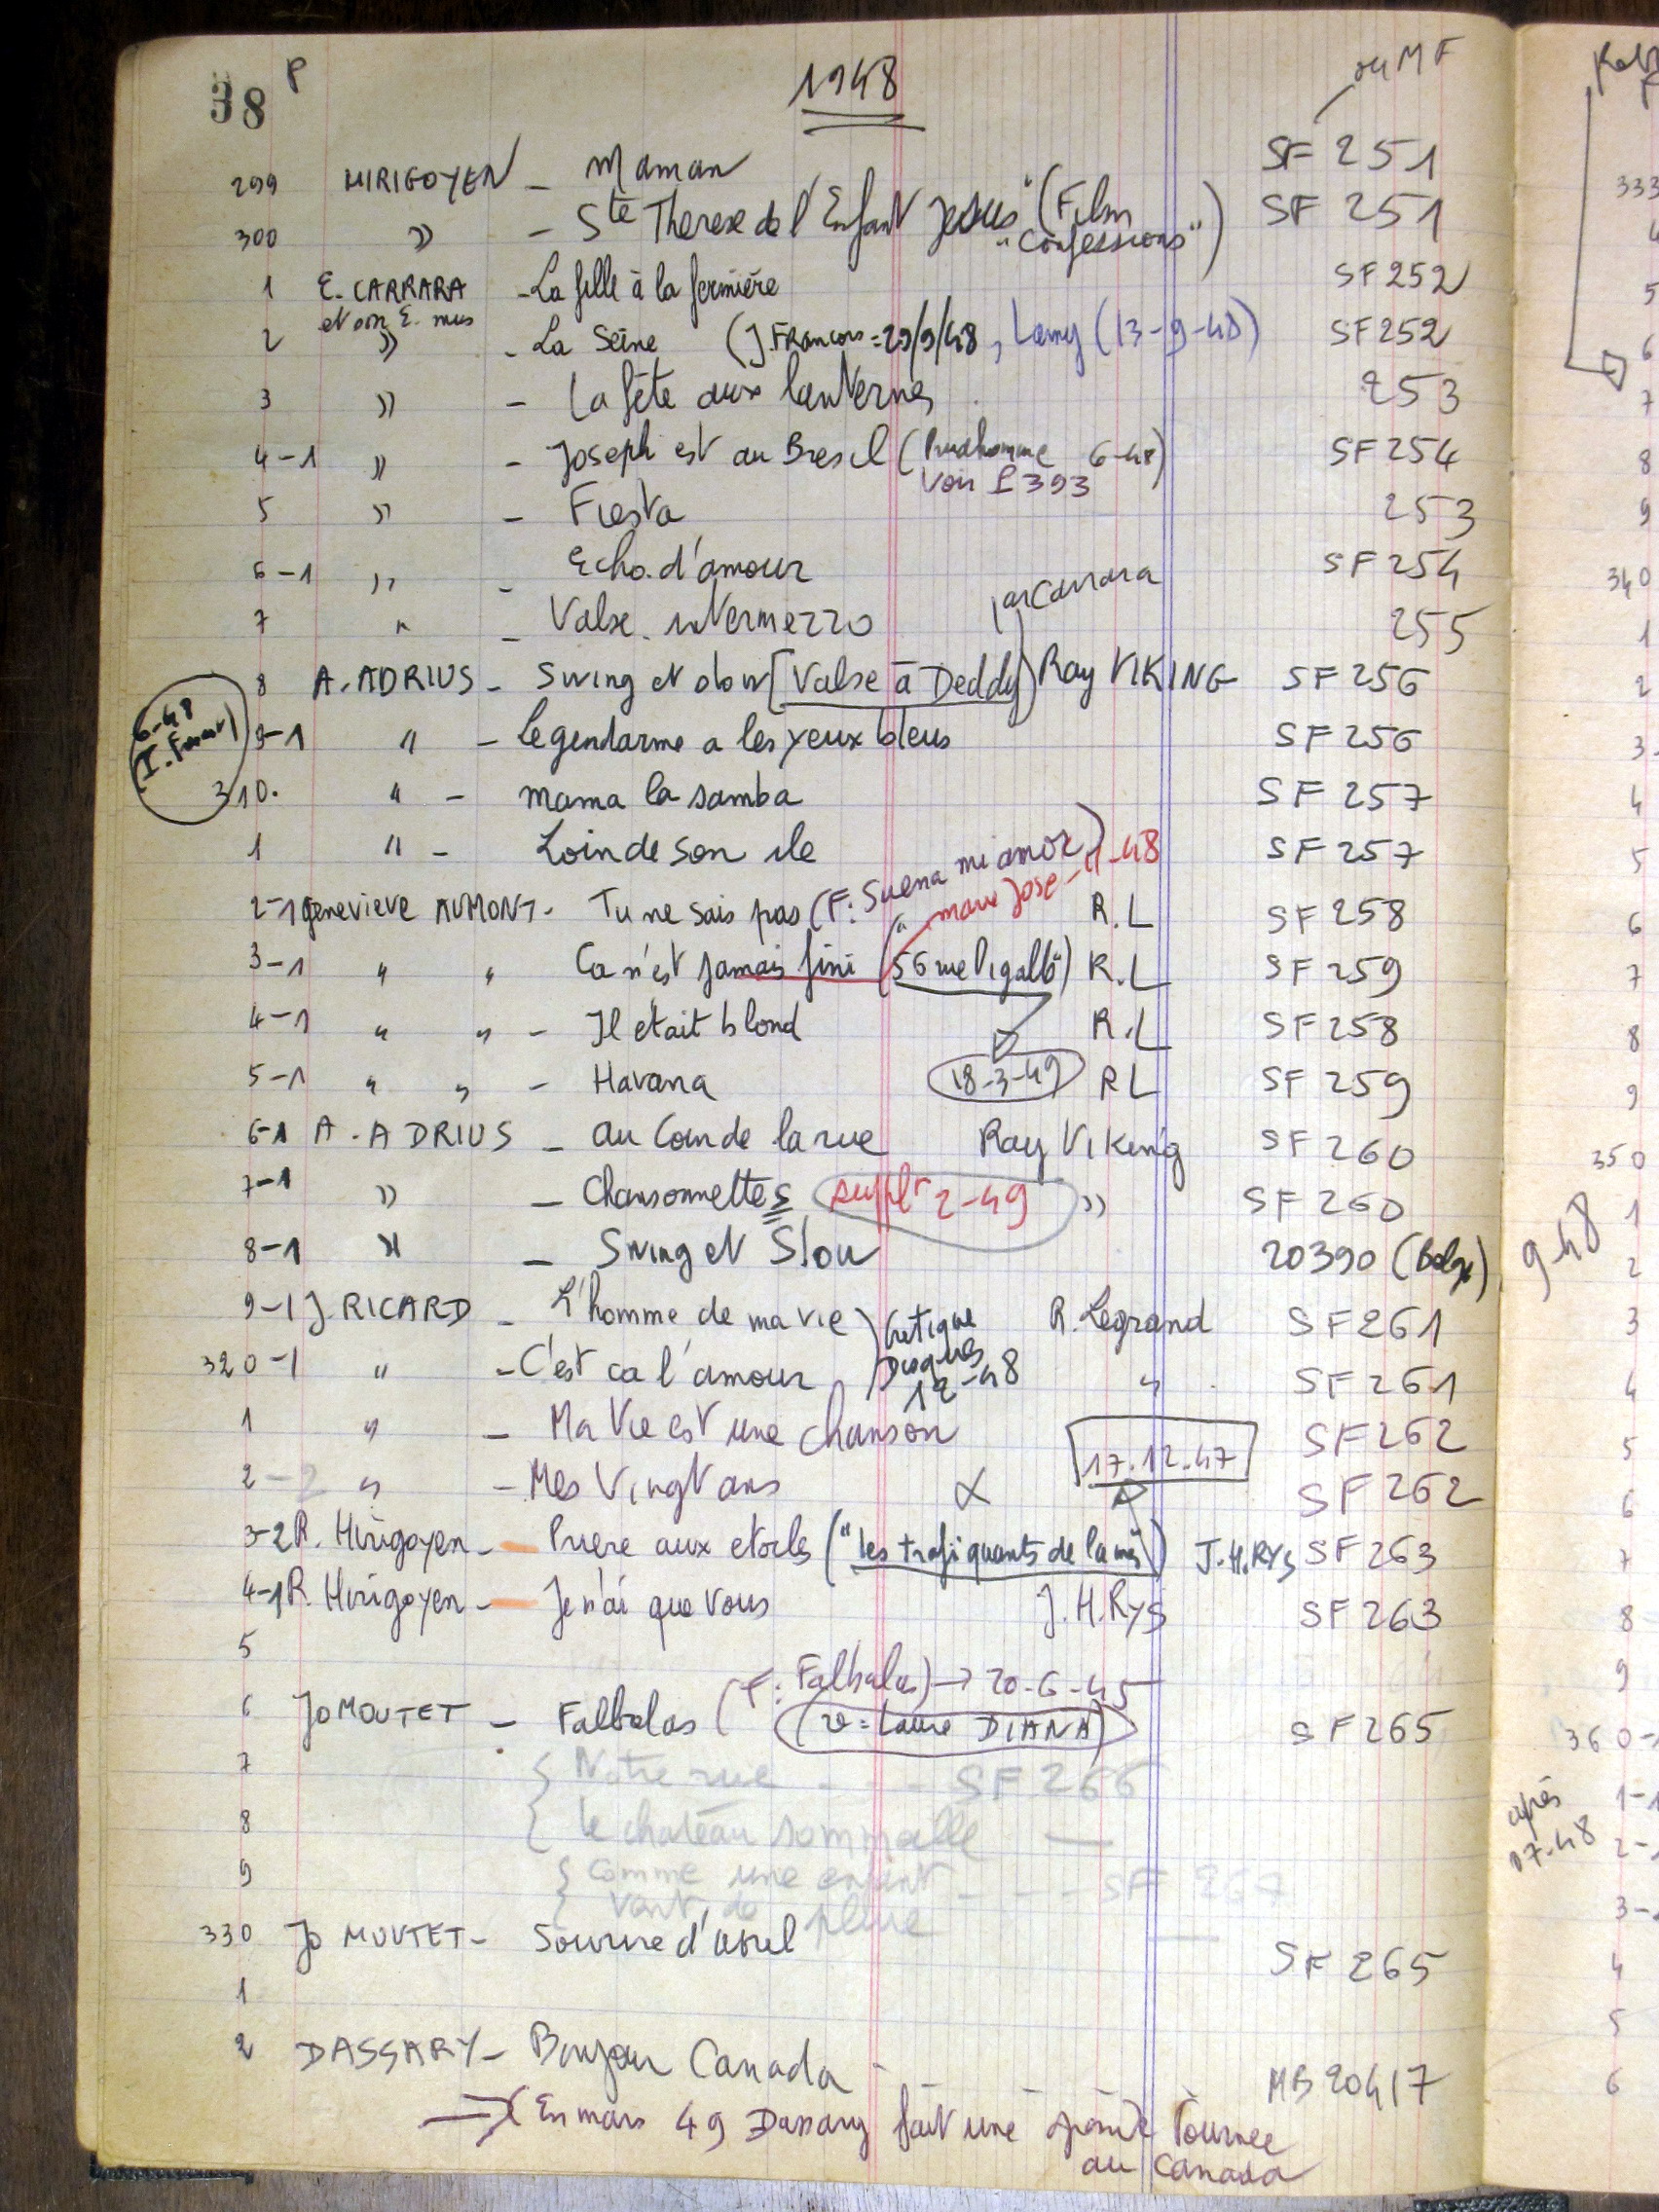 38 P 1948 ou MF
299 HIRIGOYEN - Maman SF 251
300 " - Ste Therese de l'Enfant Jesus (Film "Confessions") SF 251
1 E. CARRARA - La fille à la fermière SF 252
et son E. mus
2 " - La Seine (J. François = 29/9/48, Lamy (13-9-48) SF 252
3 " - La fête aux lanternes 253
4-1 " - Joseph est au Bresil (Prudhomme 6-48) SF 254
Voir P 393
5 " - Fiesta 253
6-1 " - Echo. d'amour SF 254
7 " - Valse. intermezzo 255
par Carrara
8 A. ADRIUS - Swing et slow [Valse à Deddy) Ray VIKING SF 256
6-48
9-1 " - Le gendarme a les yeux bleus SF 256
310. " - mama la samba SF 257
1 " - Loin de son ile SF 257
2-1 Genevieve AUMONT - Tu ne sais pas (F: Suena mi amor) R.L SF 258
marie José - 11-48
3-1 " " Ca n'est jamais fini ("56 rue Pigalle") R.L SF 259
4-1 " " - Il etait blond R.L SF 258
5-1 " " - Havana 18-3-49 RL SF 259
6-1 A. ADRIUS - au Coin de la rue Ray Viking SF 260
7-1 " - Chansonnettes supplt 2-49 " SF 260
8-1 " - Swing et Slow 20390 (Belge)
9-1 J. RICARD - L'homme de ma vie R. Legrand SF 261
critique Disques 12-48
320-1 " - C'est ca l'amour " SF 261
1 " - Ma Vie est une chanson SF 262
17.12.47
2-2 " - Mes Vingt ans SF 262
3-2 R. Hirigoyen - Priere aux etoiles ("les trafiquants de la mer") J.H.RYS SF 263
4-1 R. Hirigoyen - Je n'ai que vous J.H.RYS SF 263
5
F: Falbalas) → 20-6-45
6 Jo MOUTET - Falbalas (v = Laure DIANA) SF 265
7 Notre rue - - - SF 266
8 Le chateau sommeille —
9 Comme une enfant - - - SF 267
Vent, de pluie —
330 Jo MOUTET - Sourire d'avril SF 265
1
2 DASSARY - Bonjour Canada - MB 20417
→ (En mars 49 Dassary fait une grande Tournee
au Canada
333
4
5
6
7
8
9
340
1
2
3-
4
5
6
7
8
9
350
1
9-48
2
3
4
5
6
7
8
9
360-1
après
1-1
17-48
2-
3-
4
5
6